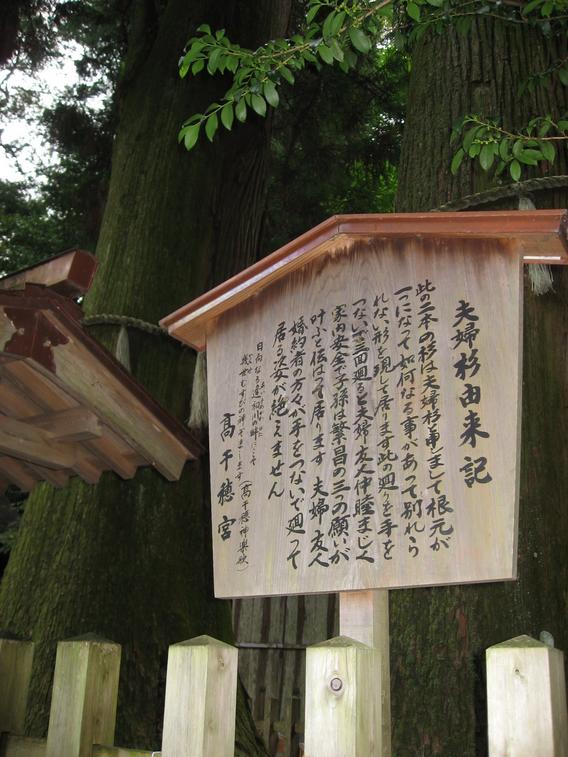 夫婦杉由来記
此の二本の杉は夫婦杉と申しまして根元が
一つになって如何なる事があって別れら
れない形を現して居ります此の廻りを手を
つないで三回廻ると夫婦、友人仲睦まじく
家内安全で子孫は繁昌の三つの願いが
叶ふと伝はって居ります 夫婦、友人
婚約者の方々が手をつないで廻って
居る姿が絶えません
日向なる逢初川の畔にこそ
幾世むすびの神ぞまします(高千穂神楽歌)
高千穂宮